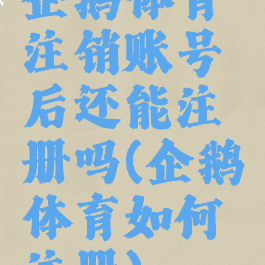 企鹅体育
注销账号
后还能注
册吗(企鹅
体育如何
注册)